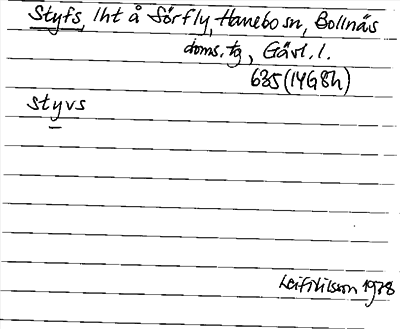 Styfs, lht å Sörfly, Hanebo sn, Bollnäs
doms. tg, Gävl. l.
635 (14G8h)
styvs
Leif Nilsson 1978